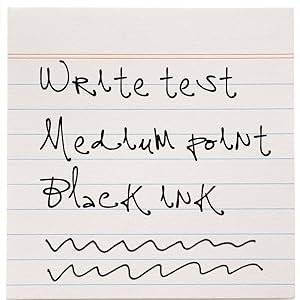 Write test
Medium point
Black ink